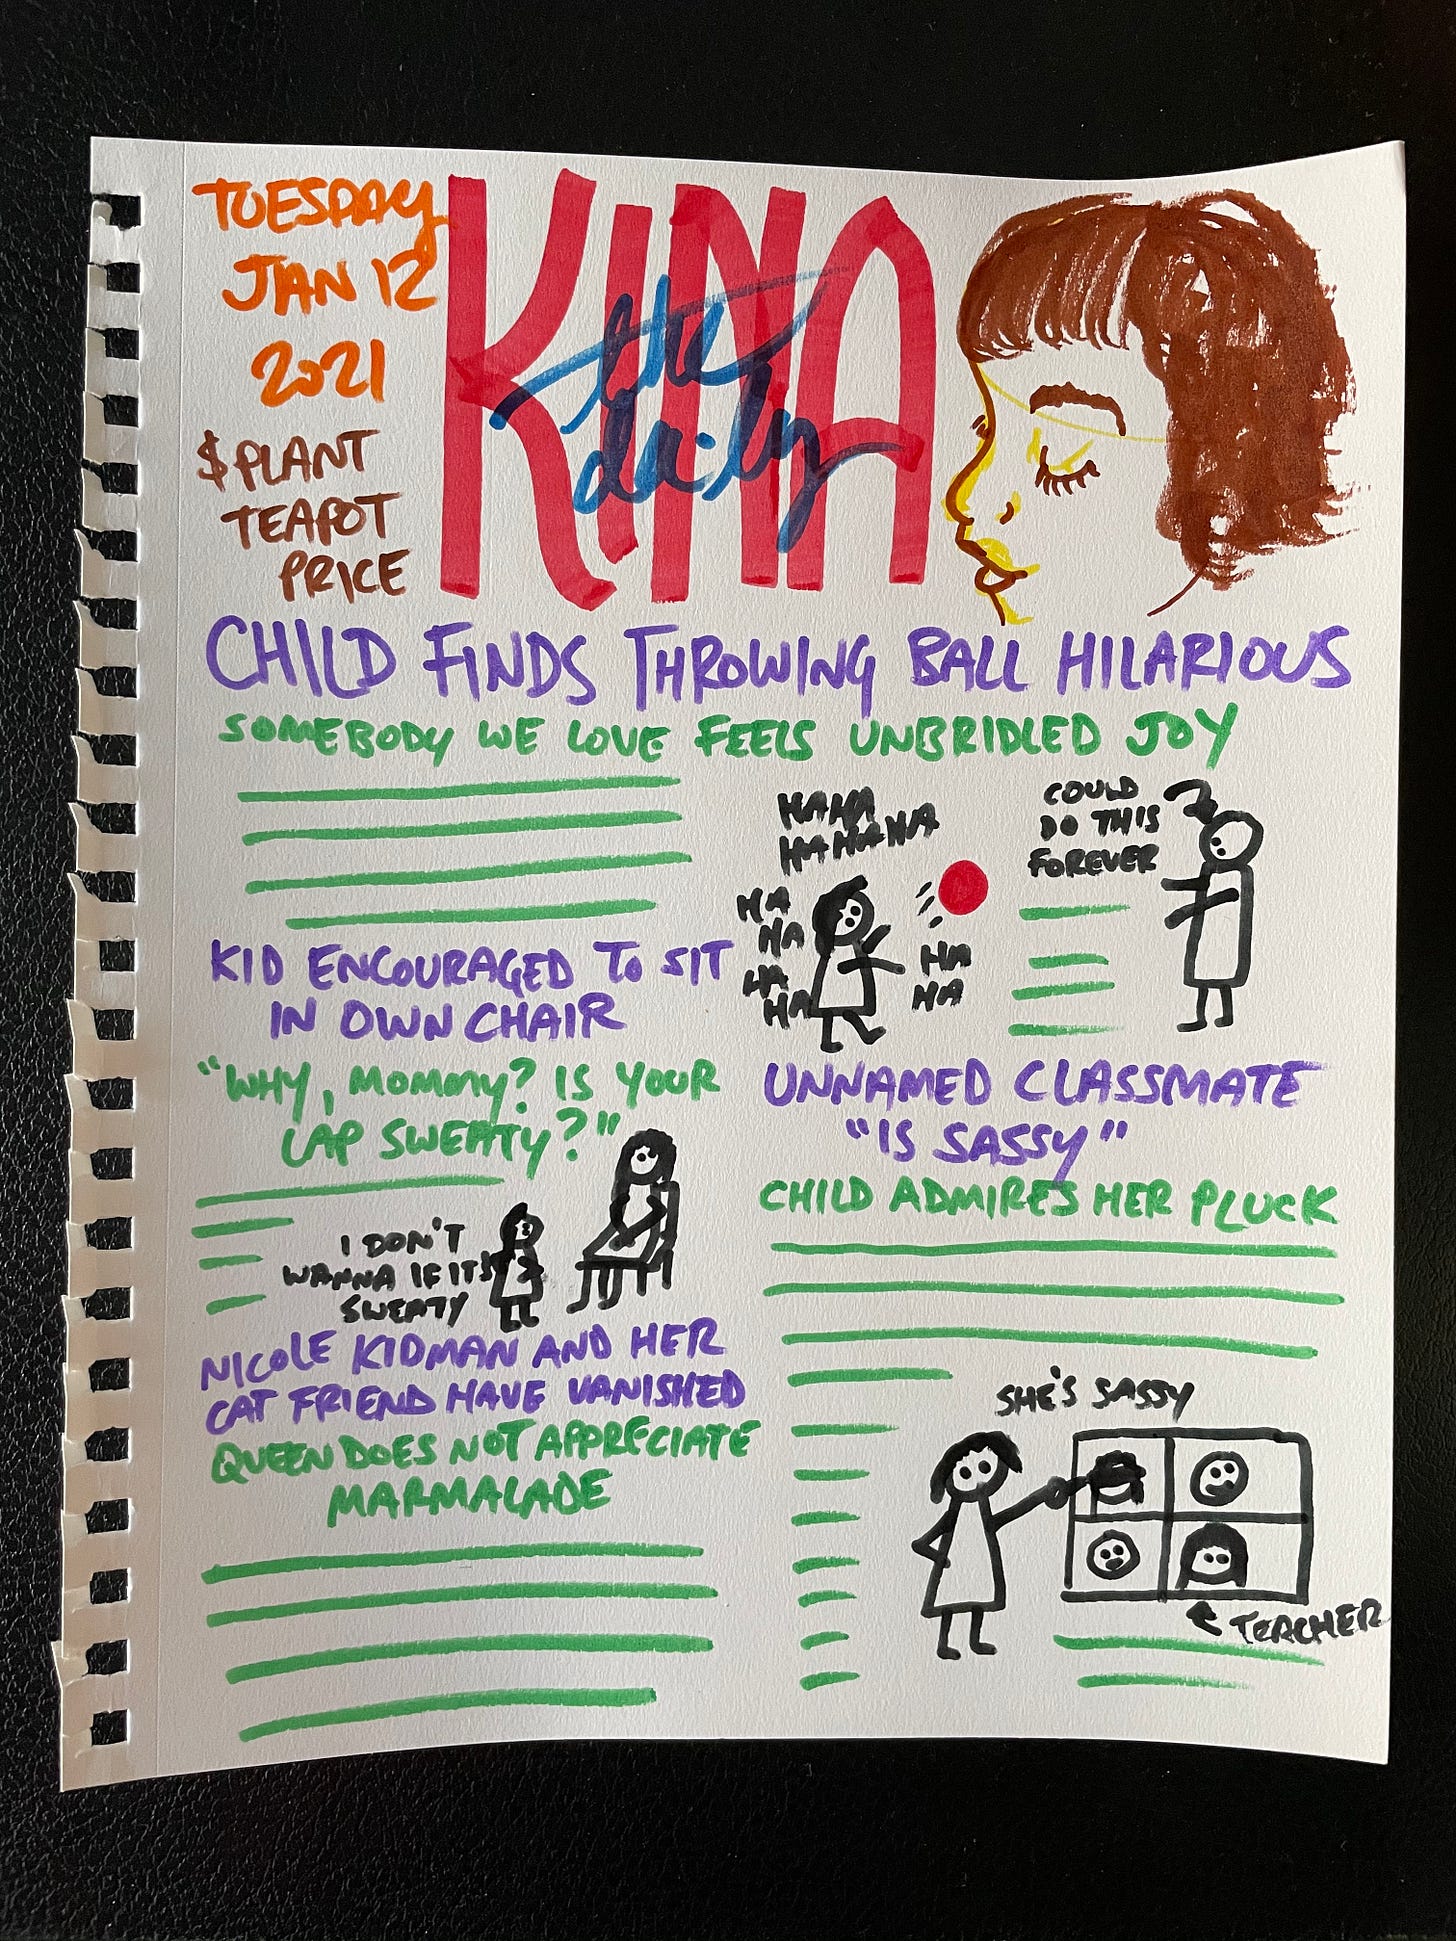 TUESDAY
JAN 12
2021
$PLANT
TEAPOT
PRICE
KINA
the
daily
CHILD FINDS THROWING BALL HILARIOUS
SOMEBODY WE LOVE FEELS UNBRIDLED JOY
HAHA
HAHAHA
HA
HA
HA
HA
HA
HA
COULD
DO THIS
FOREVER
KID ENCOURAGED TO SIT
IN OWN CHAIR
"WHY, MOMMY? IS YOUR
LAP SWEATY?"
I DON'T
WANNA IF ITS
SWEATY
NICOLE KIDMAN AND HER
CAT FRIEND HAVE VANISHED
QUEEN DOES NOT APPRECIATE
MARMALADE
UNNAMED CLASSMATE
"IS SASSY"
CHILD ADMIRES HER PLUCK
SHE'S SASSY
TEACHER